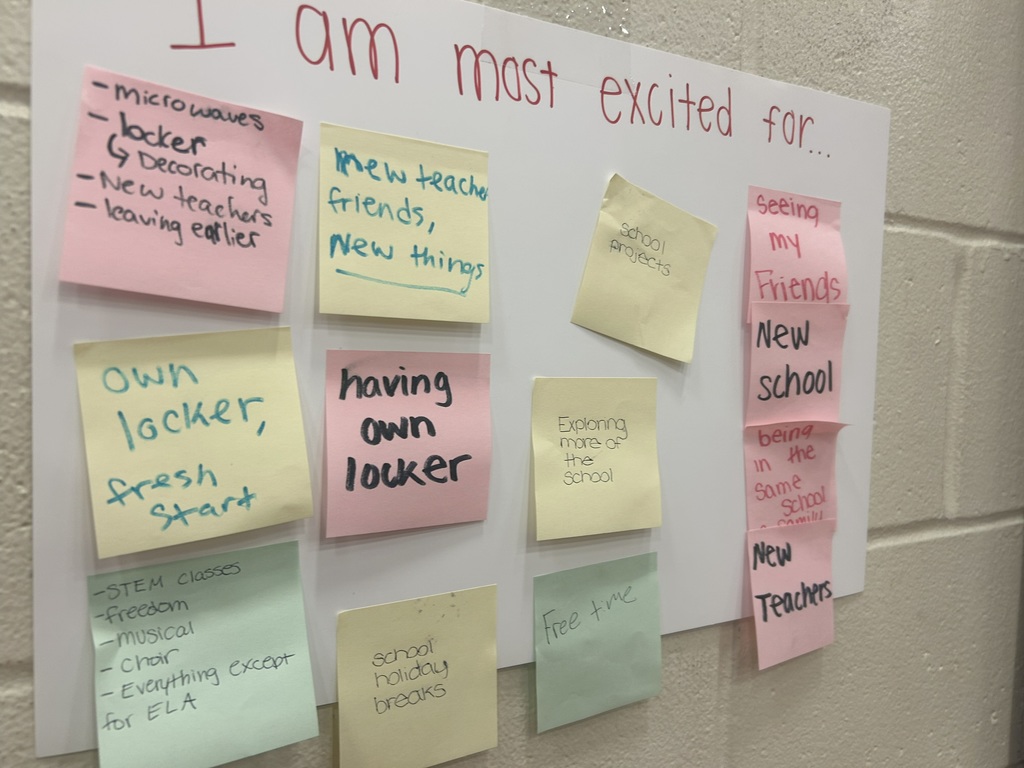 I am most excited for...
- microwaves
- locker
↳ Decorating
- New teachers
- leaving earlier
new teache
friends,
New things
school
projects
seeing
my
Friends
own
locker,
fresh
start
having
own
locker
Exploring
more of
the
school
New
school
being
in the
same school
family
- STEM classes
- freedom
- musical
- Choir
- Everything except
for ELA
school
holiday
breaks
Free time
New
Teachers